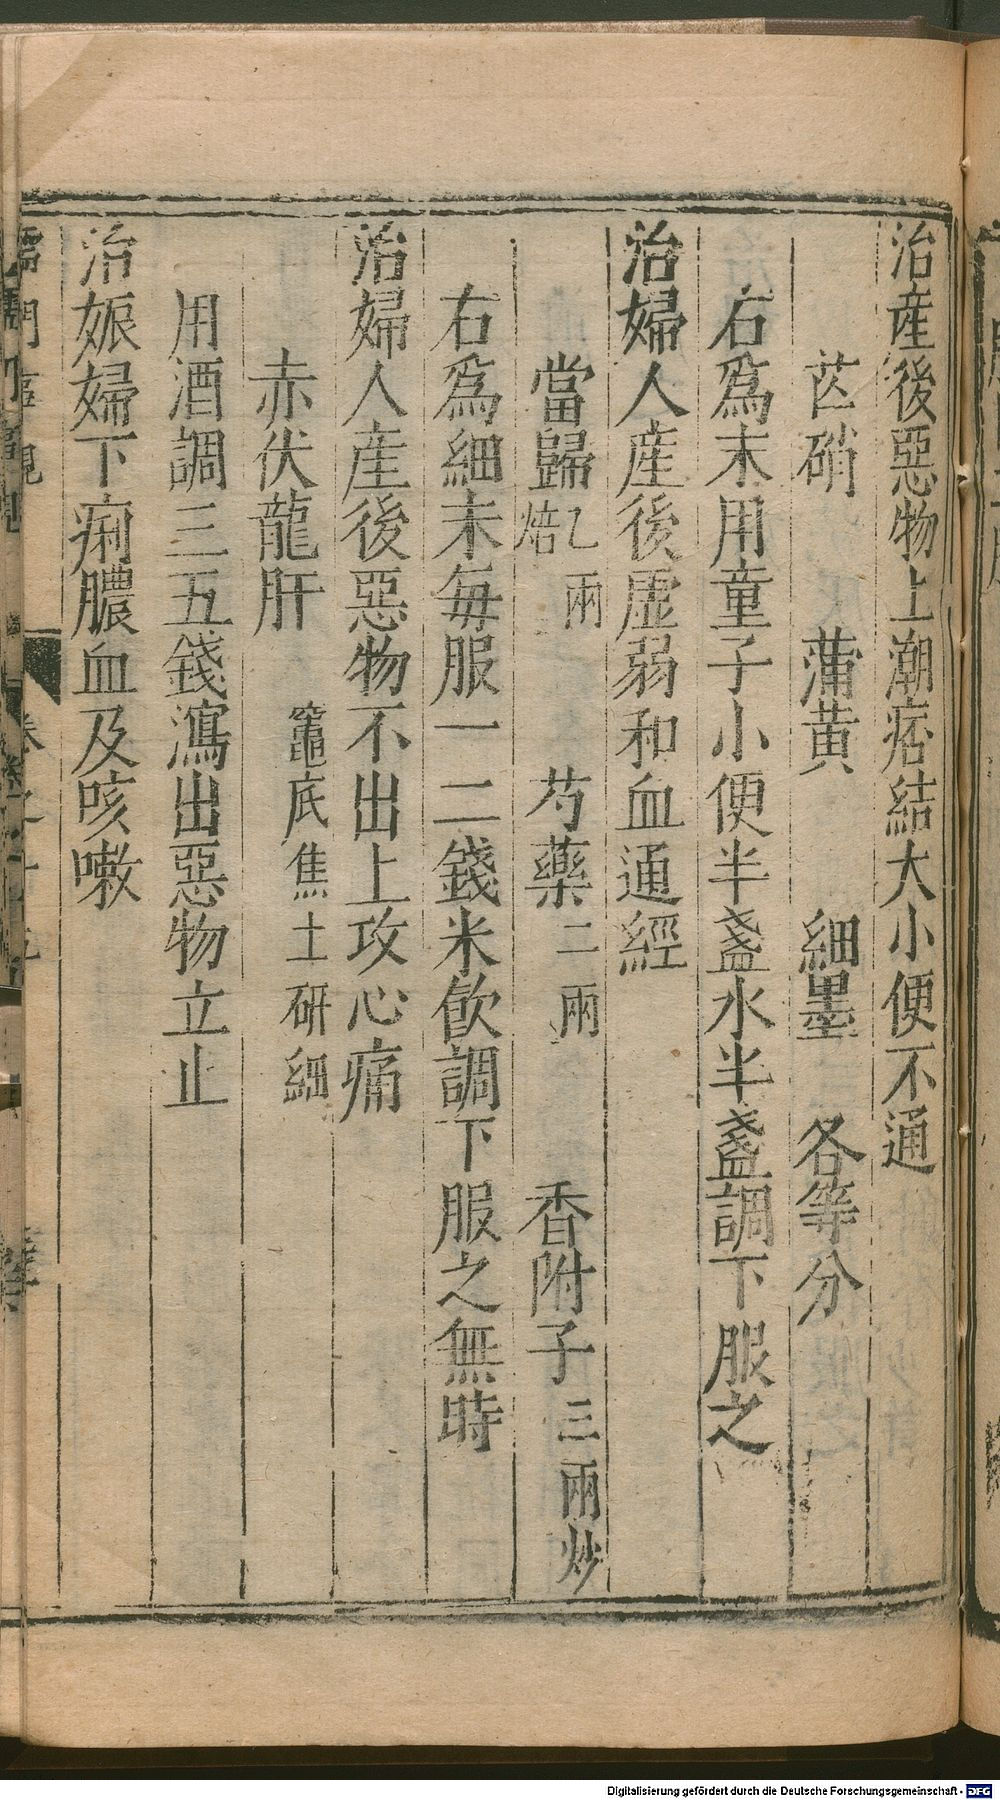 治產後惡物上潮痞結大小便不通
芒硝　蒲黃　細墨　各等分
右爲末用童子小便半盞水半盞調下服之
治婦人產後虛弱和血通經
當歸乙兩焙　芍藥二兩　香附子三兩炒
右爲細末每服一二錢米飮調下服之無時
治婦人產後惡物不出上攻心痛
赤伏龍肝　竈底焦土研細
用酒調三五錢瀉出惡物立止
治娠婦下痢膿血及咳嗽
Digitalisierung gefördert durch die Deutsche Forschungsgemeinschaft - DFG